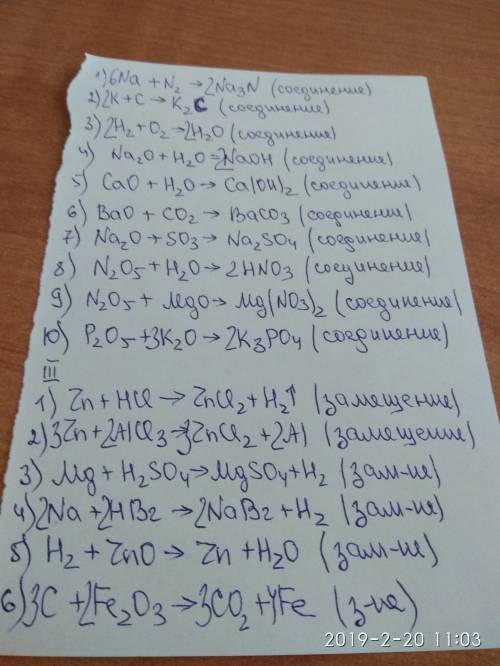 1) 6Na + N₂ → 2Na₃N (соединение)
2) 2K + C → K₂C (соединение)
3) 2H₂ + O₂ → 2H₂O (соединение)
4) Na₂O + H₂O = 2NaOH (соединение)
5) CaO + H₂O → Ca(OH)₂ (соединение)
6) BaO + CO₂ → BaCO₃ (соединение)
7) Na₂O + SO₃ → Na₂SO₄ (соединение)
8) N₂O₅ + H₂O → 2HNO₃ (соединение)
9) N₂O₅ + MgO → Mg(NO₃)₂ (соединение)
10) P₂O₅ + 3K₂O → 2K₃PO₄ (соединение)
III
1) Zn + HCl → ZnCl₂ + H₂↑ (замещение)
2) 3Zn + 2AlCl₃ → 3ZnCl₂ + 2Al (замещение)
3) Mg + H₂SO₄ → MgSO₄ + H₂ (зам-ие)
4) 2Na + 2HBr → 2NaBr + H₂ (зам-ие)
5) H₂ + ZnO → Zn + H₂O (зам-ие)
6) 3C + 2Fe₂O₃ → 3CO₂ + 4Fe (з-ие)
2019-2-20 11:03